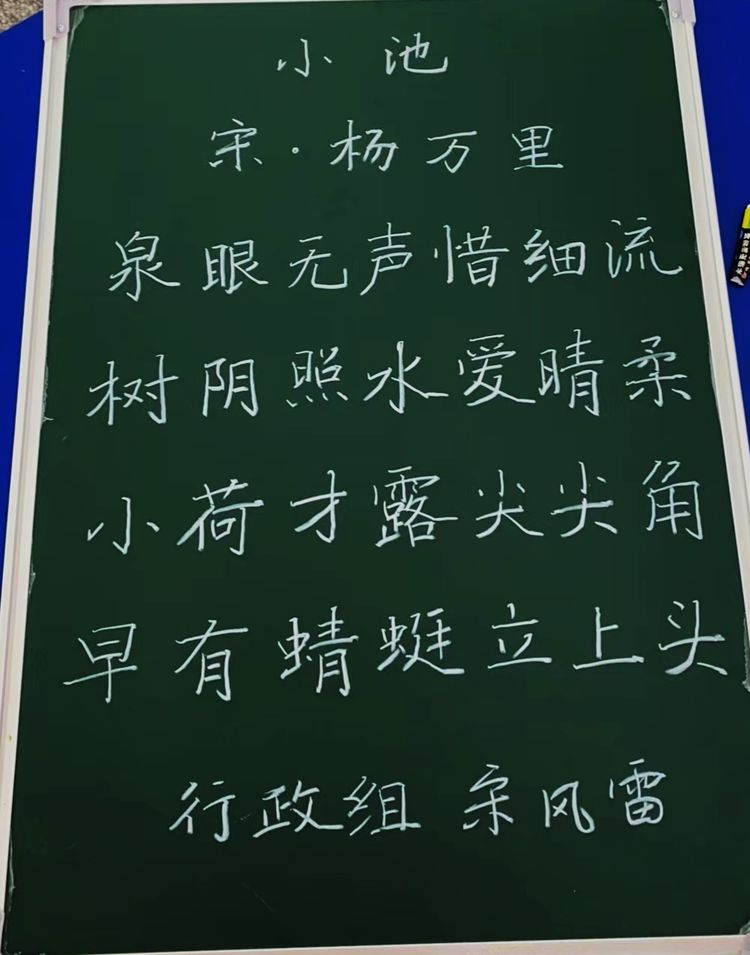 小池
宋·杨万里
泉眼无声惜细流
树阴照水爱晴柔
小荷才露尖尖角
早有蜻蜓立上头
行政组 宋风雷